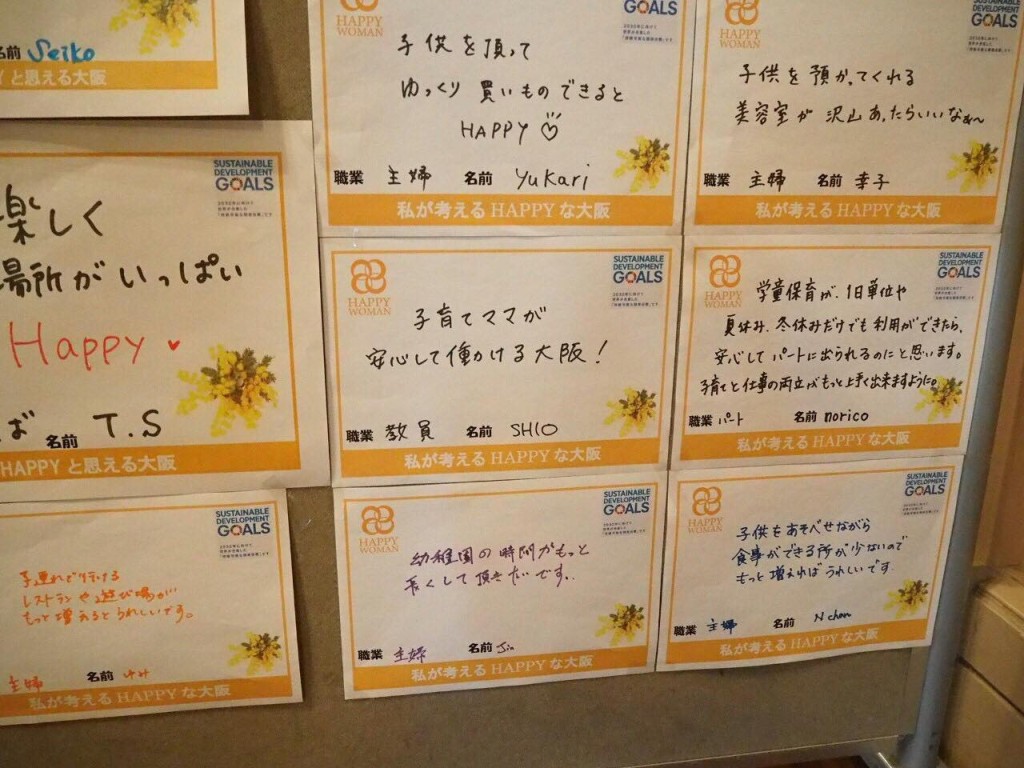 名前 Seiko
と思える大阪
HAPPY
WOMAN
GOALS
子供を頂って
ゆっくり 買いものできると
HAPPY♡
職業 主婦 名前 Yukari
私が考えるHAPPYな大阪
HAPPY
WOMAN
DEVELOPMENT
GOALS
子供を預かってくれる
美容室が 沢山あったらいいなぁ〜
職業 主婦 名前 幸子
私が考えるHAPPYな大阪
SUSTAINABLE
DEVELOPMENT
GOALS
楽しく
場所がいっぱい
Happy ♥
ば 名前 T.S
HAPPYと思える大阪
HAPPY
WOMAN
SUSTAINABLE
DEVELOPMENT
GOALS
子育てママが
安心して働かける大阪!
職業 教員 名前 SHIO
私が考えるHAPPYな大阪
HAPPY
WOMAN
SUSTAINABLE
DEVELOPMENT
GOALS
学童保育が、1日単位や
夏休み、冬休みだけでも利用ができたら、
安心してパートに出られるのにと思います。
子育てと仕事の両立がもっと上手く出来ますように。
職業 パート 名前 norico
私が考えるHAPPYな大阪
SUSTAINABLE
DEVELOPMENT
GOALS
子連れで行ける
レストランや遊び場が
もっと増えるとうれしいです。
主婦 名前 ゆみ
私が考えるHAPPYな大阪
HAPPY
WOMAN
SUSTAINABLE
DEVELOPMENT
GOALS
幼稚園の時間がもっと
長くして頂きたいです.
職業 主婦 名前 Jin
私が考えるHAPPYな大阪
HAPPY
WOMAN
SUSTAINABLE
DEVELOPMENT
GOALS
子供をあそばせながら
食事ができる所が少ないので
もっと増えればうれしいです
職業 主婦 名前 N chan
私が考えるHAPPYな大阪